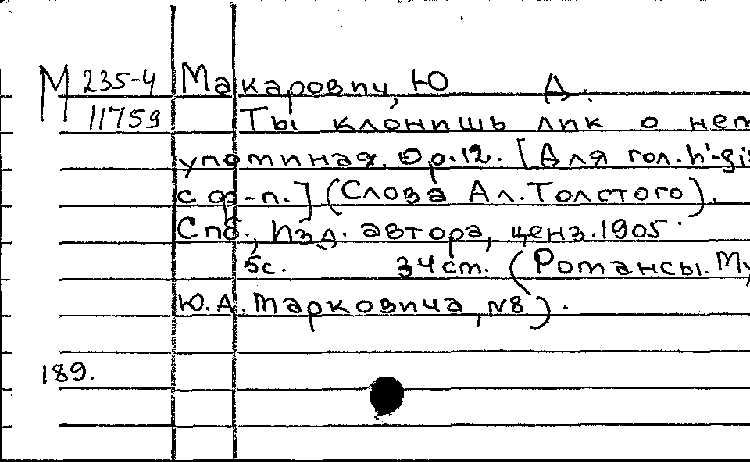 М 235-4 Макарович, Ю А.
11759 Ты клонишь лик о нем
упоминая. Op.12. [Для гол. h'-gis
с ф-п.] (Слова Ал.Толстого).
Спб., Изд. автора, ценз.1905
5с. 34см. (Романсы. Му
Ю.А.Марковича, №8).
189.